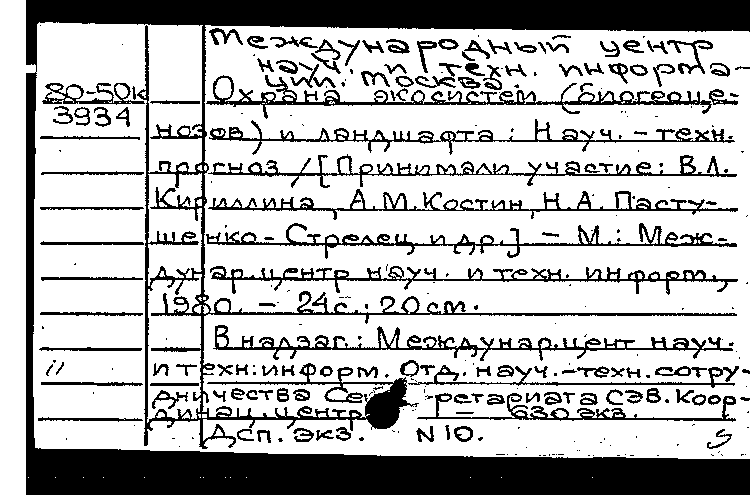 Международный центр
науч. и техн. информа-
ции. Москва
80-50к
Охрана экосистем (биогеоце-
3934
нозов) и ландшафта: Науч.-техн.
прогноз /[Принимали участие: В.Л.
Кириллина, А.М.Костин, Н.А. Пасту-
шенко-Стрелец и др.] - М.: Меж-
дунар.центр науч. и техн. информ.,
1980. - 24с.; 20см.
В надзаг.: Междунар.цент науч.
и техн.информ. Отд. науч.-техн.сотру-
дничества Секретариата СЭВ. Коор-
динац.центр - 630 экз.
Дсп. экз. N10.